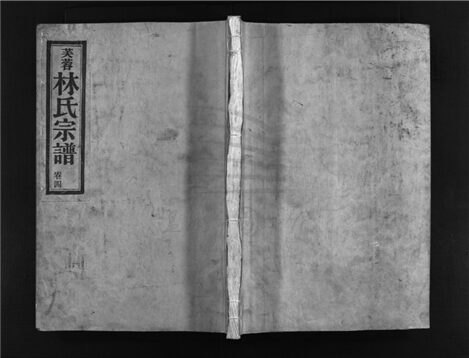 芙蓉
林氏宗譜
卷四